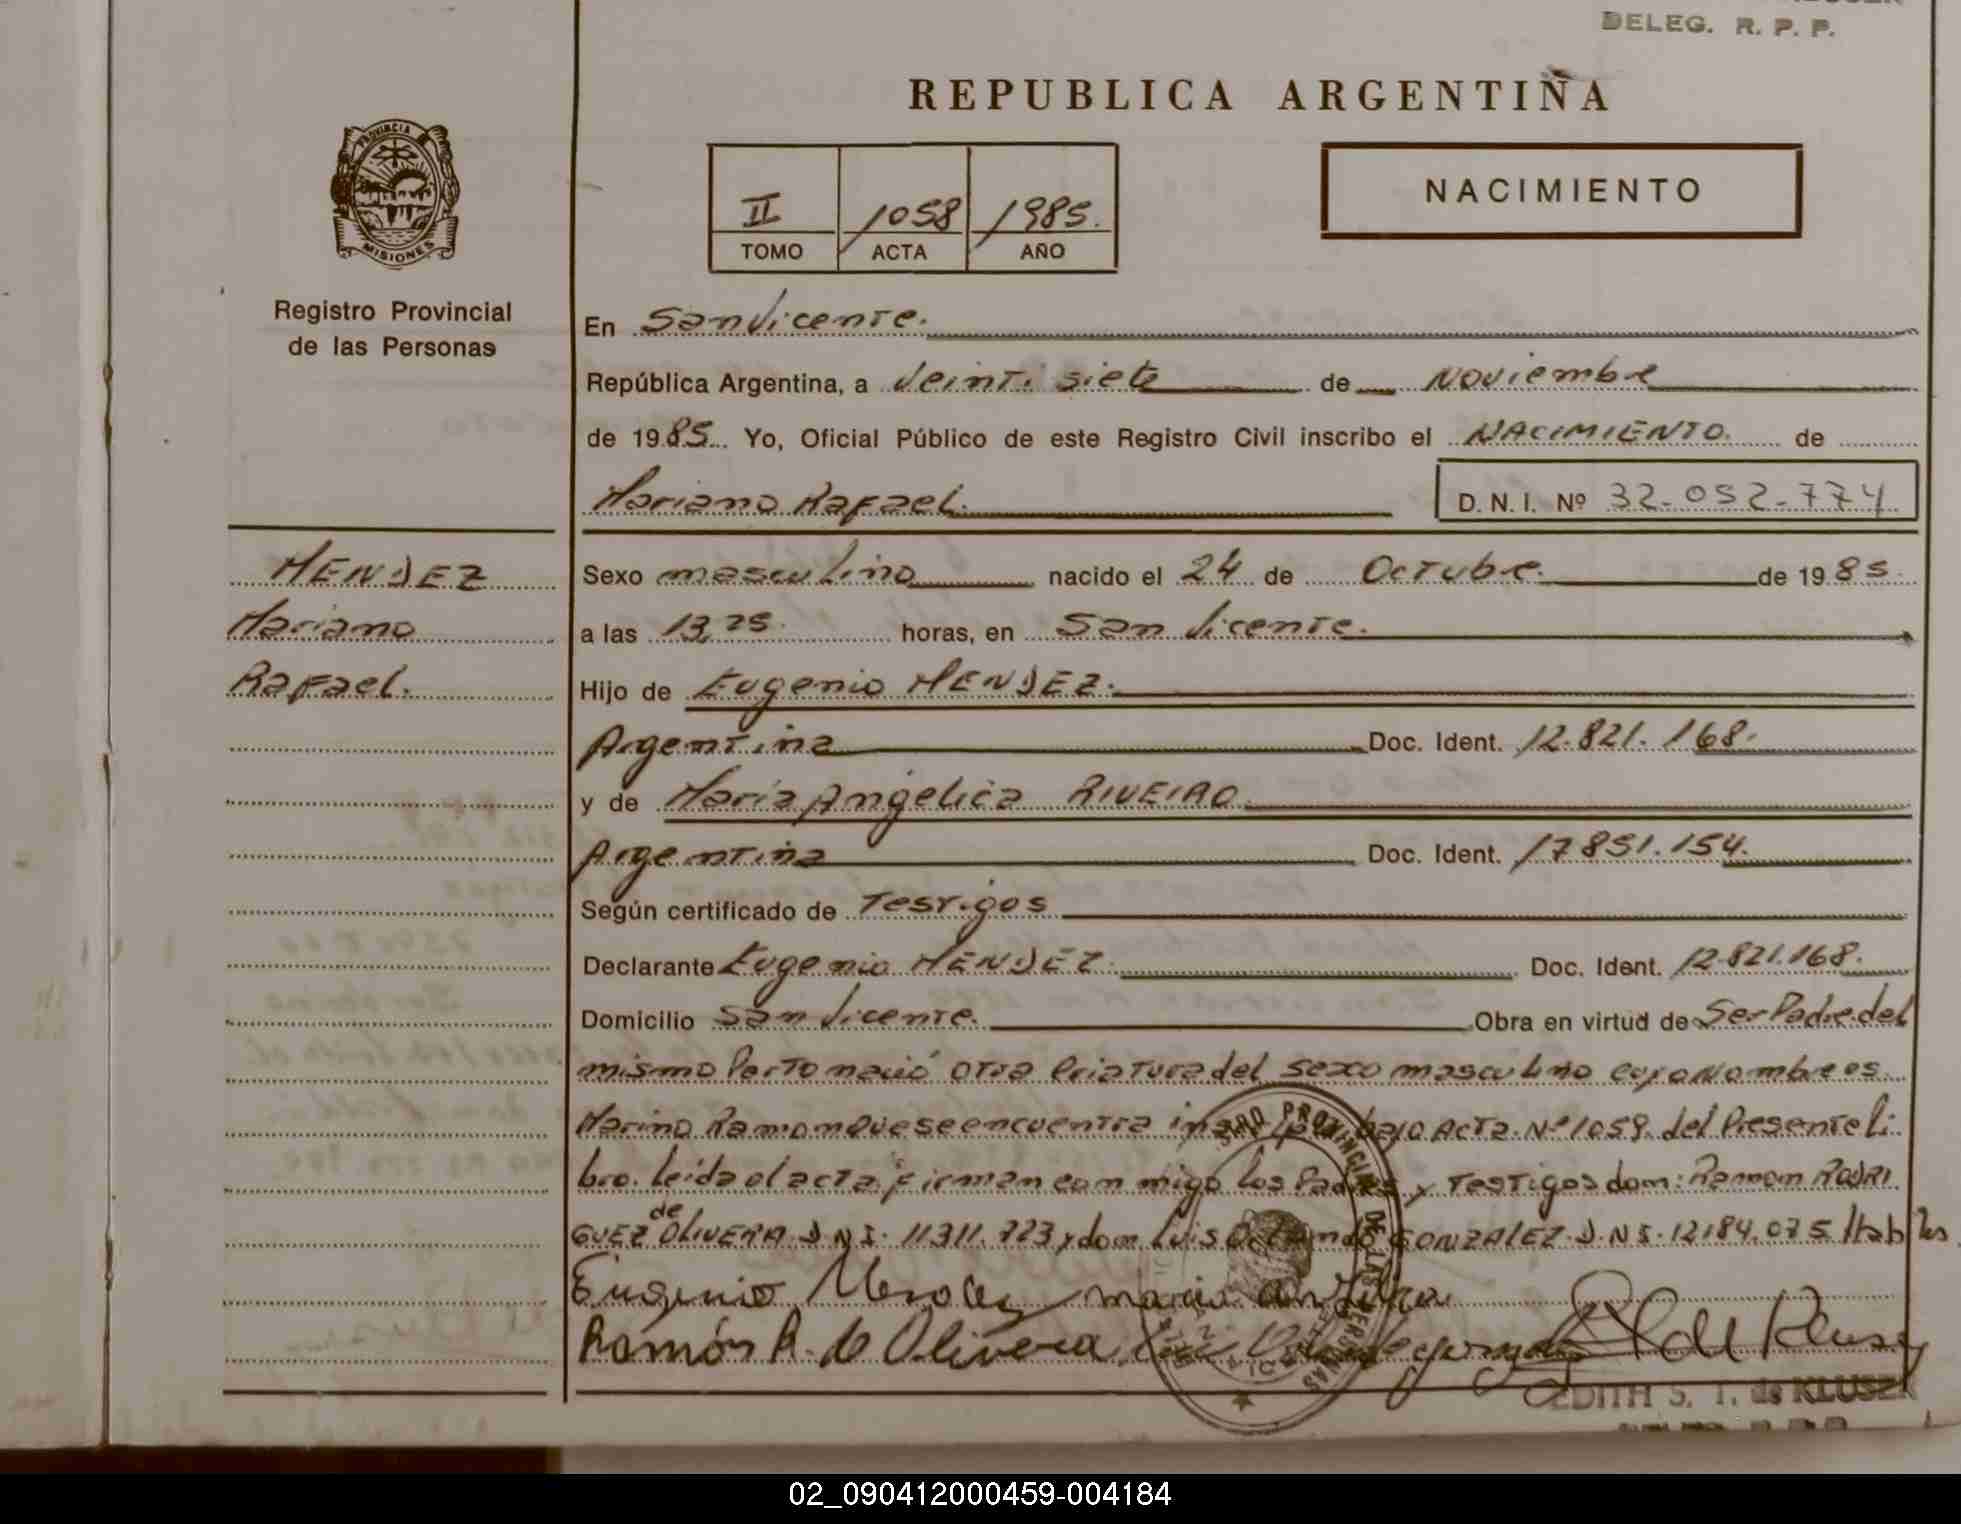 DELEG. R. P. P.
REPUBLICA ARGENTINA
PROVINCIA
MISIONES
II 1058 1985.
TOMO ACTA AÑO
NACIMIENTO
Registro Provincial
de las Personas
En San Vicente.
República Argentina, a Veinti siete de Noviembre
de 1985 Yo, Oficial Público de este Registro Civil inscribo el NACIMIENTO de
Mariano Rafael. D. N. I. Nº 32.052.774
MENDEZ
Mariano
Rafael.
Sexo masculino nacido el 24 de Octubre de 1985
a las 13,25 horas, en San Vicente.
Hijo de Eugenio MENDEZ.
Argentina Doc. Ident. 12.821.168.
y de María Angélica RIVEIRO
Argentina Doc. Ident. 17851.154.
Según certificado de Testigos
Declarante Eugenio MENDEZ Doc. Ident. 12.821.168.
Domicilio San Vicente. Obra en virtud de Ser Padre. del
mismo Parto nació otra Criatura del sexo masculino cuyo Nombre es
Marino Ramon que se encuentra bajo Acta Nº 1059 del Presente li
bro. Leida el acta firman conmigo los Padres y Testigos don: Ramon RODRI
GUEZ de OLIVERA D.N.I. 11311.723 y don Luis GONZALEZ D.N.I. 12184.075 Habiles
Eugenio Mendez maria
Ramón R. de Olivera
EDITH S. T. de KLUSZ
REGISTRO PROVINCIAL DE LAS PERSONAS
02_090412000459-004184